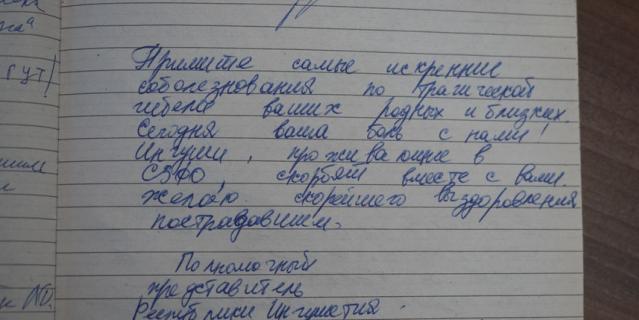 Примите самые искренние
соболезнования по трагической
гибели ваших родных и близких.
Сегодня ваша боль с нами!
Ингуши, проживающие в
СЗФО, скорбят вместе с вами.
желаю скорейшего выздоровления
пострадавшим.
Полномочный
представитель
Республики Ингушетия.
ГУТ/